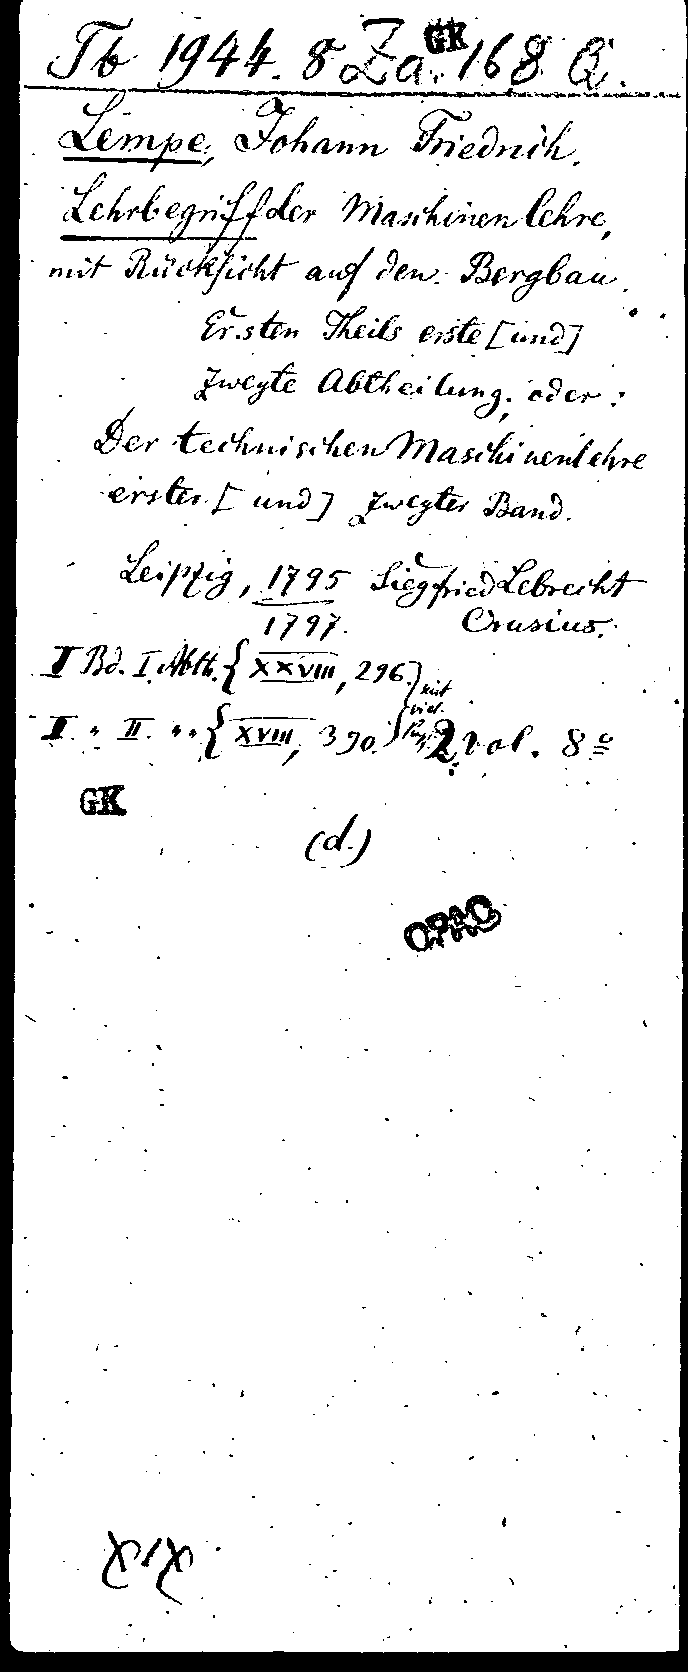 Tb 1944. 8 Za. 168 Q.
GK
Lempe, Johann Friedrich.
Lehrbegriff der Maschinenlehre,
mit Rücksicht auf den Bergbau.
Ersten Theils erste [und]
zweyte Abtheilung, oder:
Der technischen Maschinenlehre
erster [und] zweyter Band.
Leipzig, 1795 Siegfried Lebrecht
1797. Crusius.
I Bd. I. Abth. { XXVIII, 296. } mit
II. " II. " " { XVIII, 390. } 2 vol. 8º
GK
(d.)
OPAC